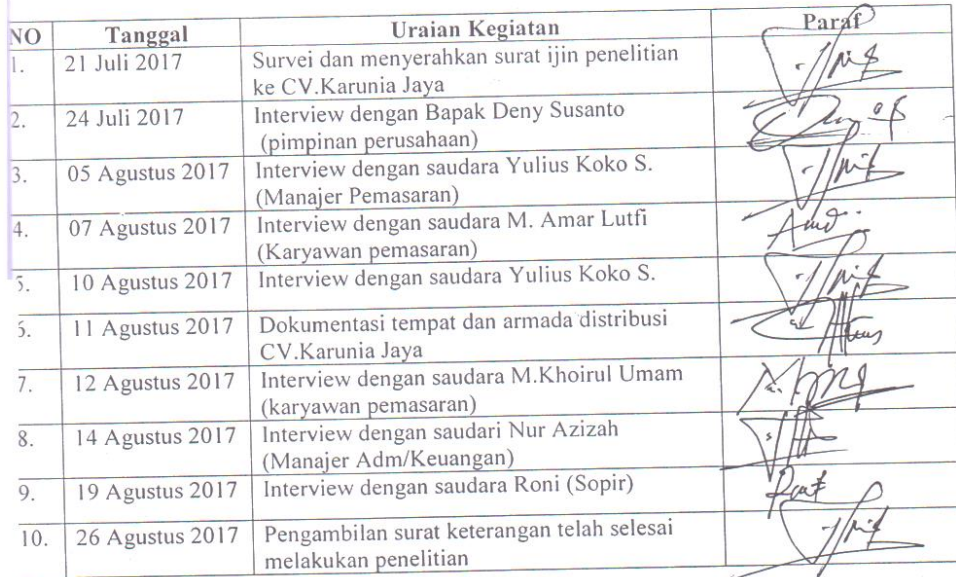 NO Tanggal Uraian Kegiatan Paraf
1. 21 Juli 2017 Survei dan menyerahkan surat ijin penelitian
ke CV.Karunia Jaya
2. 24 Juli 2017 Interview dengan Bapak Deny Susanto
(pimpinan perusahaan)
3. 05 Agustus 2017 Interview dengan saudara Yulius Koko S.
(Manajer Pemasaran)
4. 07 Agustus 2017 Interview dengan saudara M. Amar Lutfi
(Karyawan pemasaran)
5. 10 Agustus 2017 Interview dengan saudara Yulius Koko S.
6. 11 Agustus 2017 Dokumentasi tempat dan armada distribusi
CV.Karunia Jaya
7. 12 Agustus 2017 Interview dengan saudara M.Khoirul Umam
(karyawan pemasaran)
8. 14 Agustus 2017 Interview dengan saudari Nur Azizah
(Manajer Adm/Keuangan)
9. 19 Agustus 2017 Interview dengan saudara Roni (Sopir)
10. 26 Agustus 2017 Pengambilan surat keterangan telah selesai
melakukan penelitian